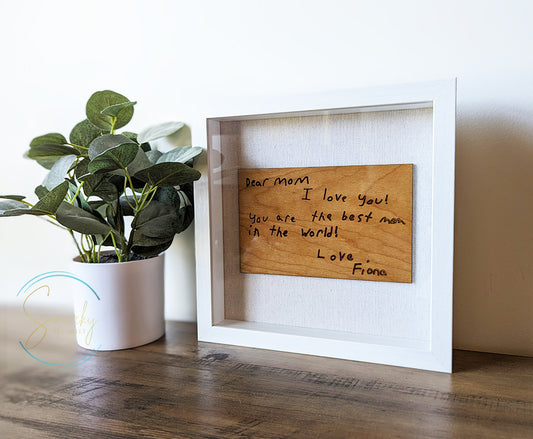 Dear Mom
I love you!
You are the best mom
in the world!
Love,
Fiona